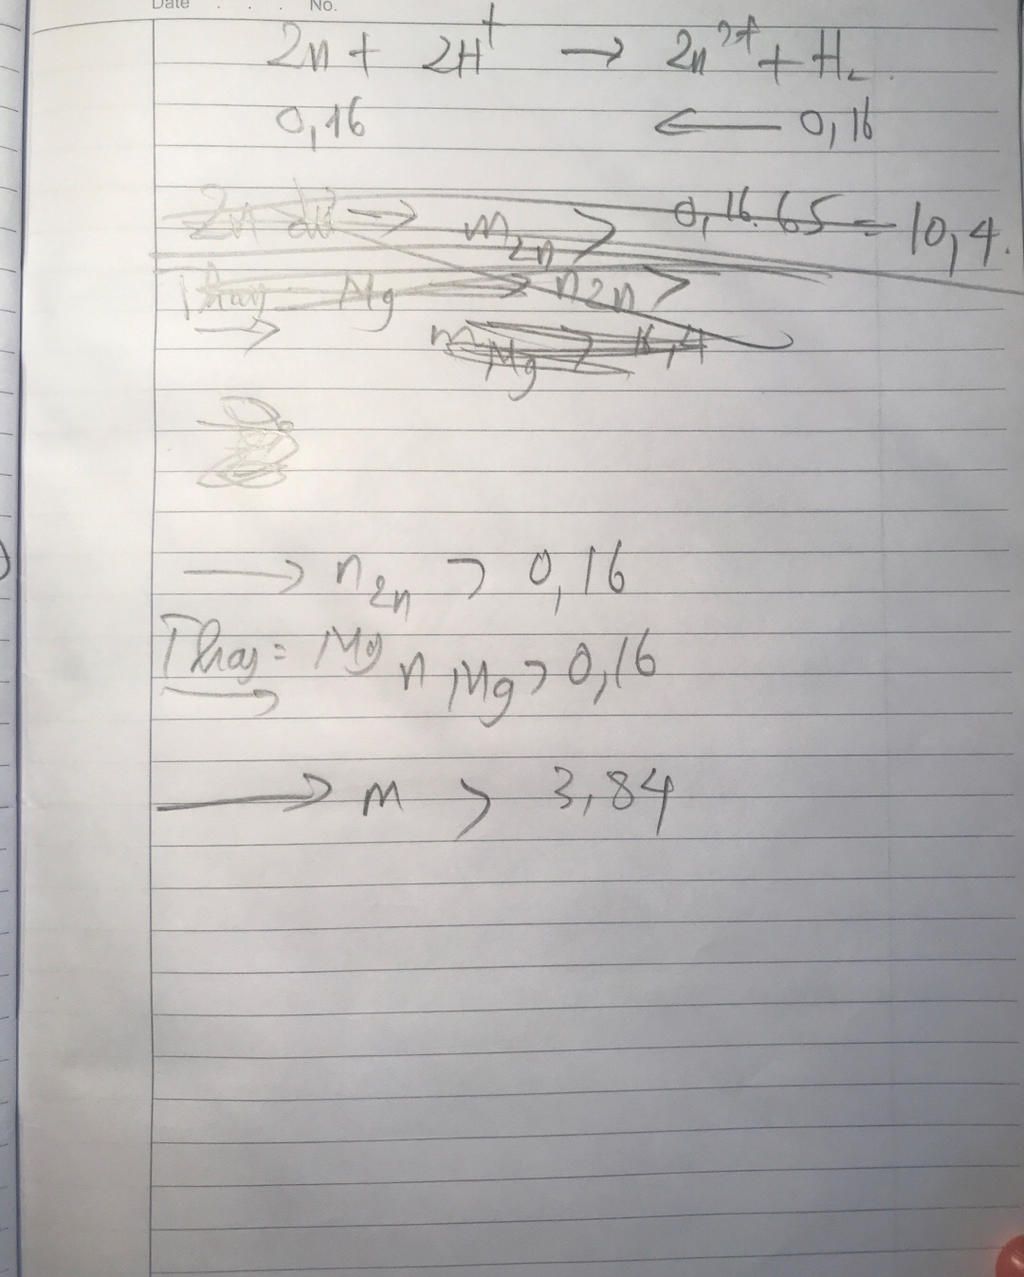 Date . . . No.
Zn + 2H⁺ → Zn²⁺ + H₂.
0,16 ← 0,16
Zn dư → m Zn > 0,16.65 = 10,4.
Thay = Mg → n Zn >
m Mg > 16,4
→ n Zn > 0,16
Thay = Mg n Mg > 0,16
→ m > 3,84